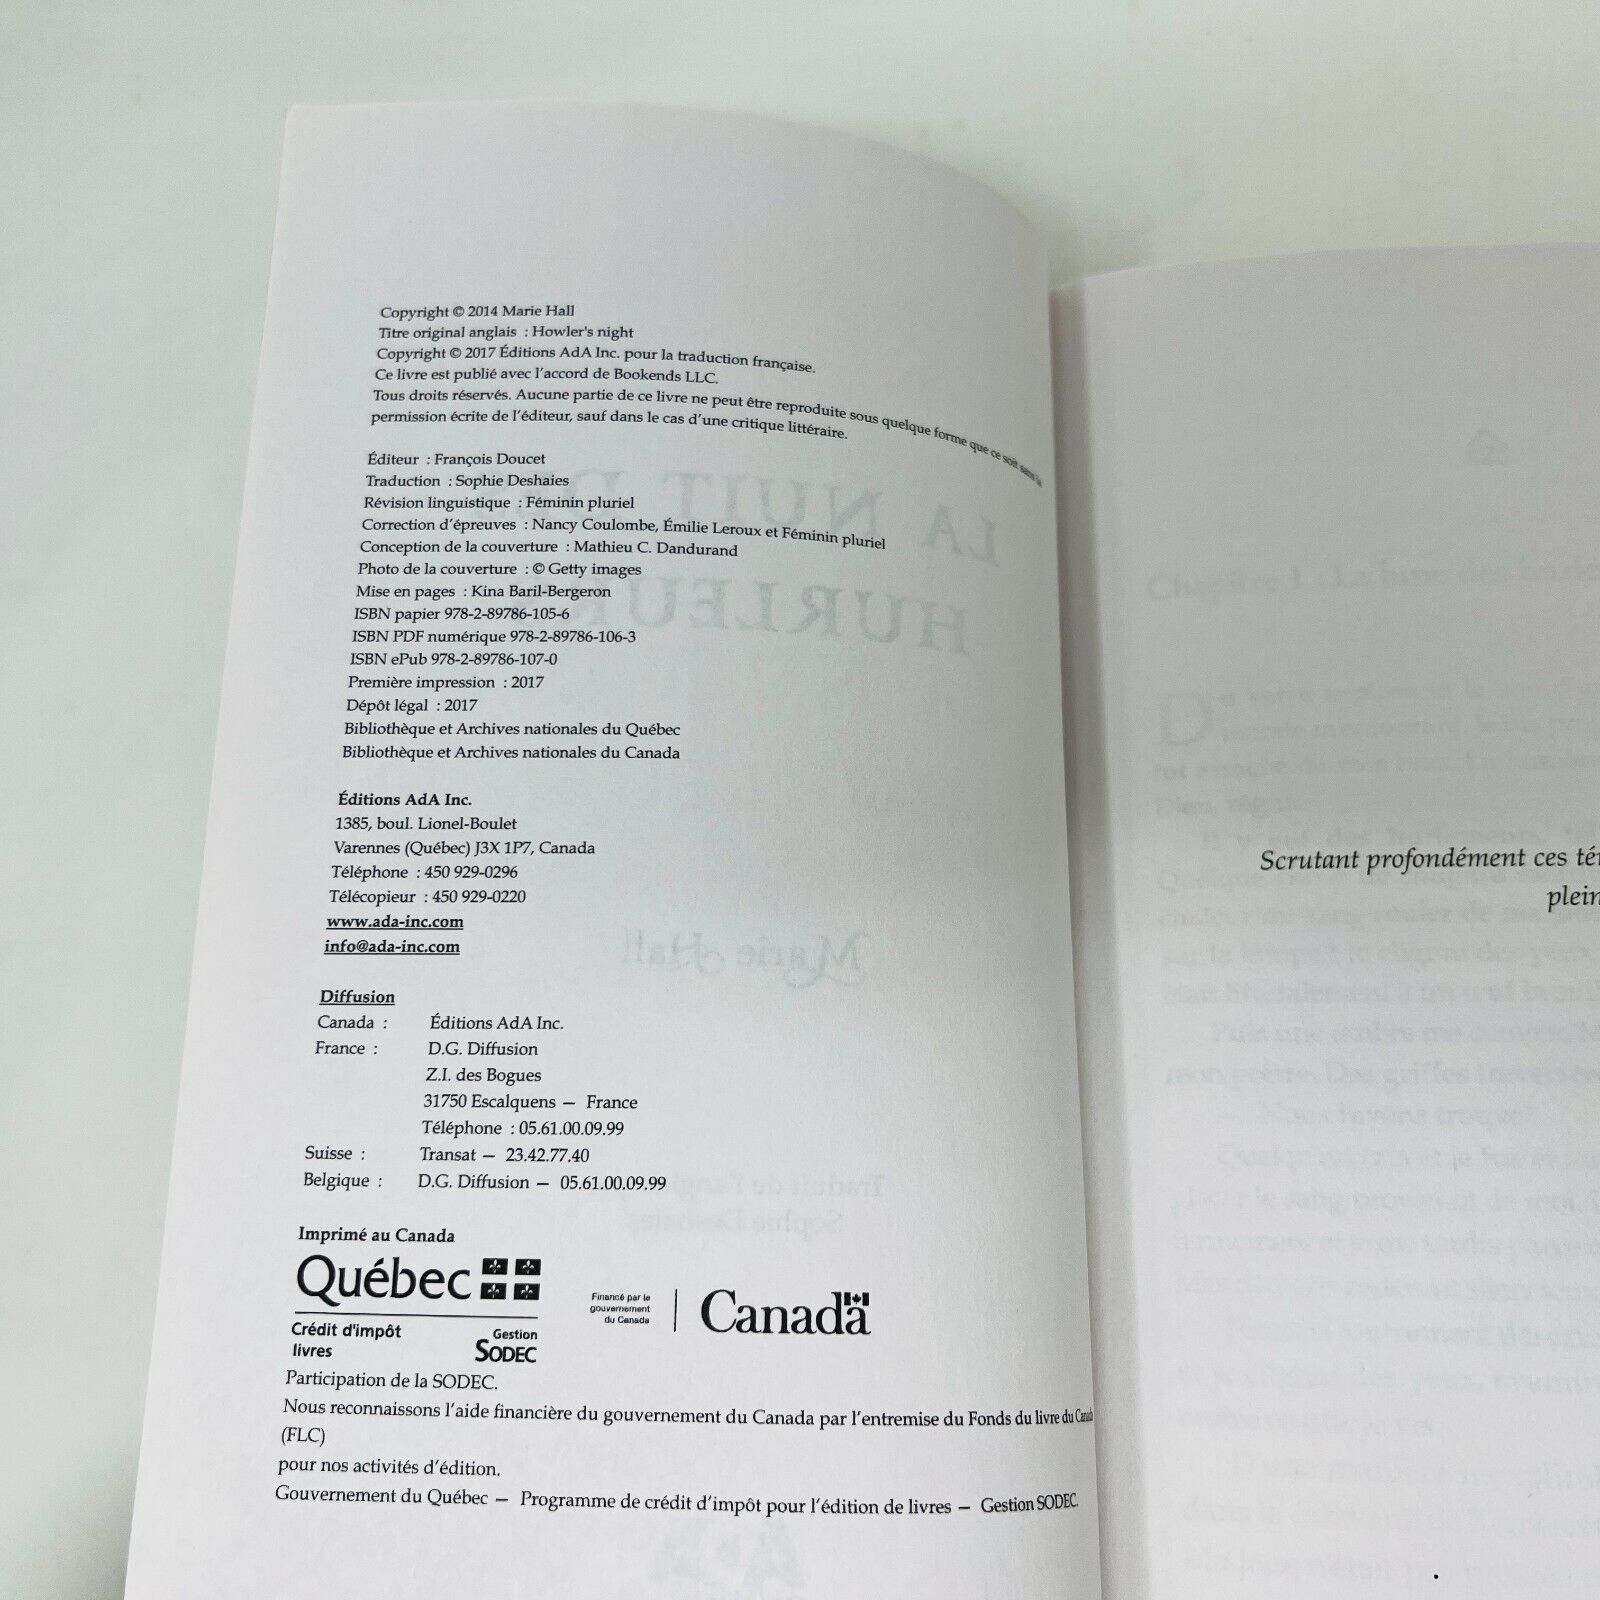 Copyright © 2014 Marie Hall
Titre original anglais : Howler's night
Copyright © 2017 Éditions AdA Inc. pour la traduction française.
Ce livre est publié avec l'accord de Bookends LLC.
Tous droits réservés. Aucune partie de ce livre ne peut être reproduite sous quelque forme que ce soit sans la
permission écrite de l'éditeur, sauf dans le cas d'une critique littéraire.
Éditeur : François Doucet
Traduction : Sophie Deshaies
Révision linguistique : Féminin pluriel
Correction d'épreuves : Nancy Coulombe, Émilie Leroux et Féminin pluriel
Conception de la couverture : Mathieu C. Dandurand
Photo de la couverture : © Getty images
Mise en pages : Kina Baril-Bergeron
ISBN papier 978-2-89786-105-6
ISBN PDF numérique 978-2-89786-106-3
ISBN ePub 978-2-89786-107-0
Première impression : 2017
Dépôt légal : 2017
Bibliothèque et Archives nationales du Québec
Bibliothèque et Archives nationales du Canada
Éditions AdA Inc.
1385, boul. Lionel-Boulet
Varennes (Québec) J3X 1P7, Canada
Téléphone : 450 929-0296
Télécopieur : 450 929-0220
www.ada-inc.com
info@ada-inc.com
Diffusion
Canada : Éditions AdA Inc.
France : D.G. Diffusion
Z.I. des Bogues
31750 Escalquens — France
Téléphone : 05.61.00.09.99
Suisse : Transat — 23.42.77.40
Belgique : D.G. Diffusion — 05.61.00.09.99
Imprimé au Canada
Québec
Crédit d'impôt
livres
Gestion
SODEC
Financé par le
gouvernement
du Canada
Canada
Participation de la SODEC.
Nous reconnaissons l'aide financière du gouvernement du Canada par l'entremise du Fonds du livre du Canada
(FLC)
pour nos activités d'édition.
Gouvernement du Québec — Programme de crédit d'impôt pour l'édition de livres — Gestion SODEC.
LA NUIT DES
HURLEURS
Marie Hall
Scrutant profondément ces